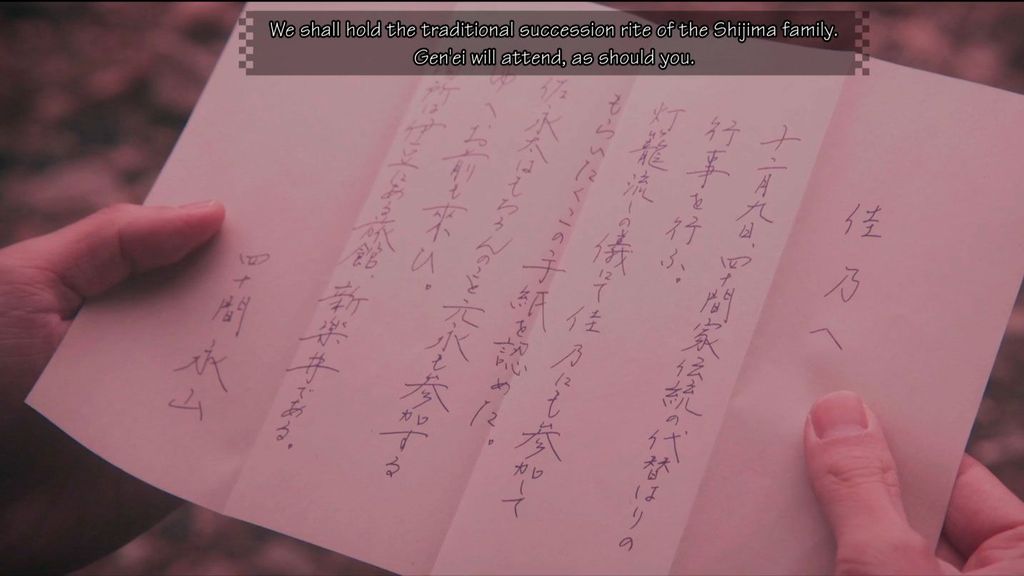 We shall hold the traditional succession rite of the Shijima family.
Gen'ei will attend, as should you.
佳乃へ
十二月九日、四十間家伝統の代替はりの
行事を行ふ。
灯籠流しの儀にて佳乃にも参加して
もらいたくこの手紙を認めた。
はもちろんのこと元永も参加する
ゆへ、お前も来ひ。
所は にある旅館、新楽 である。
四十間永山